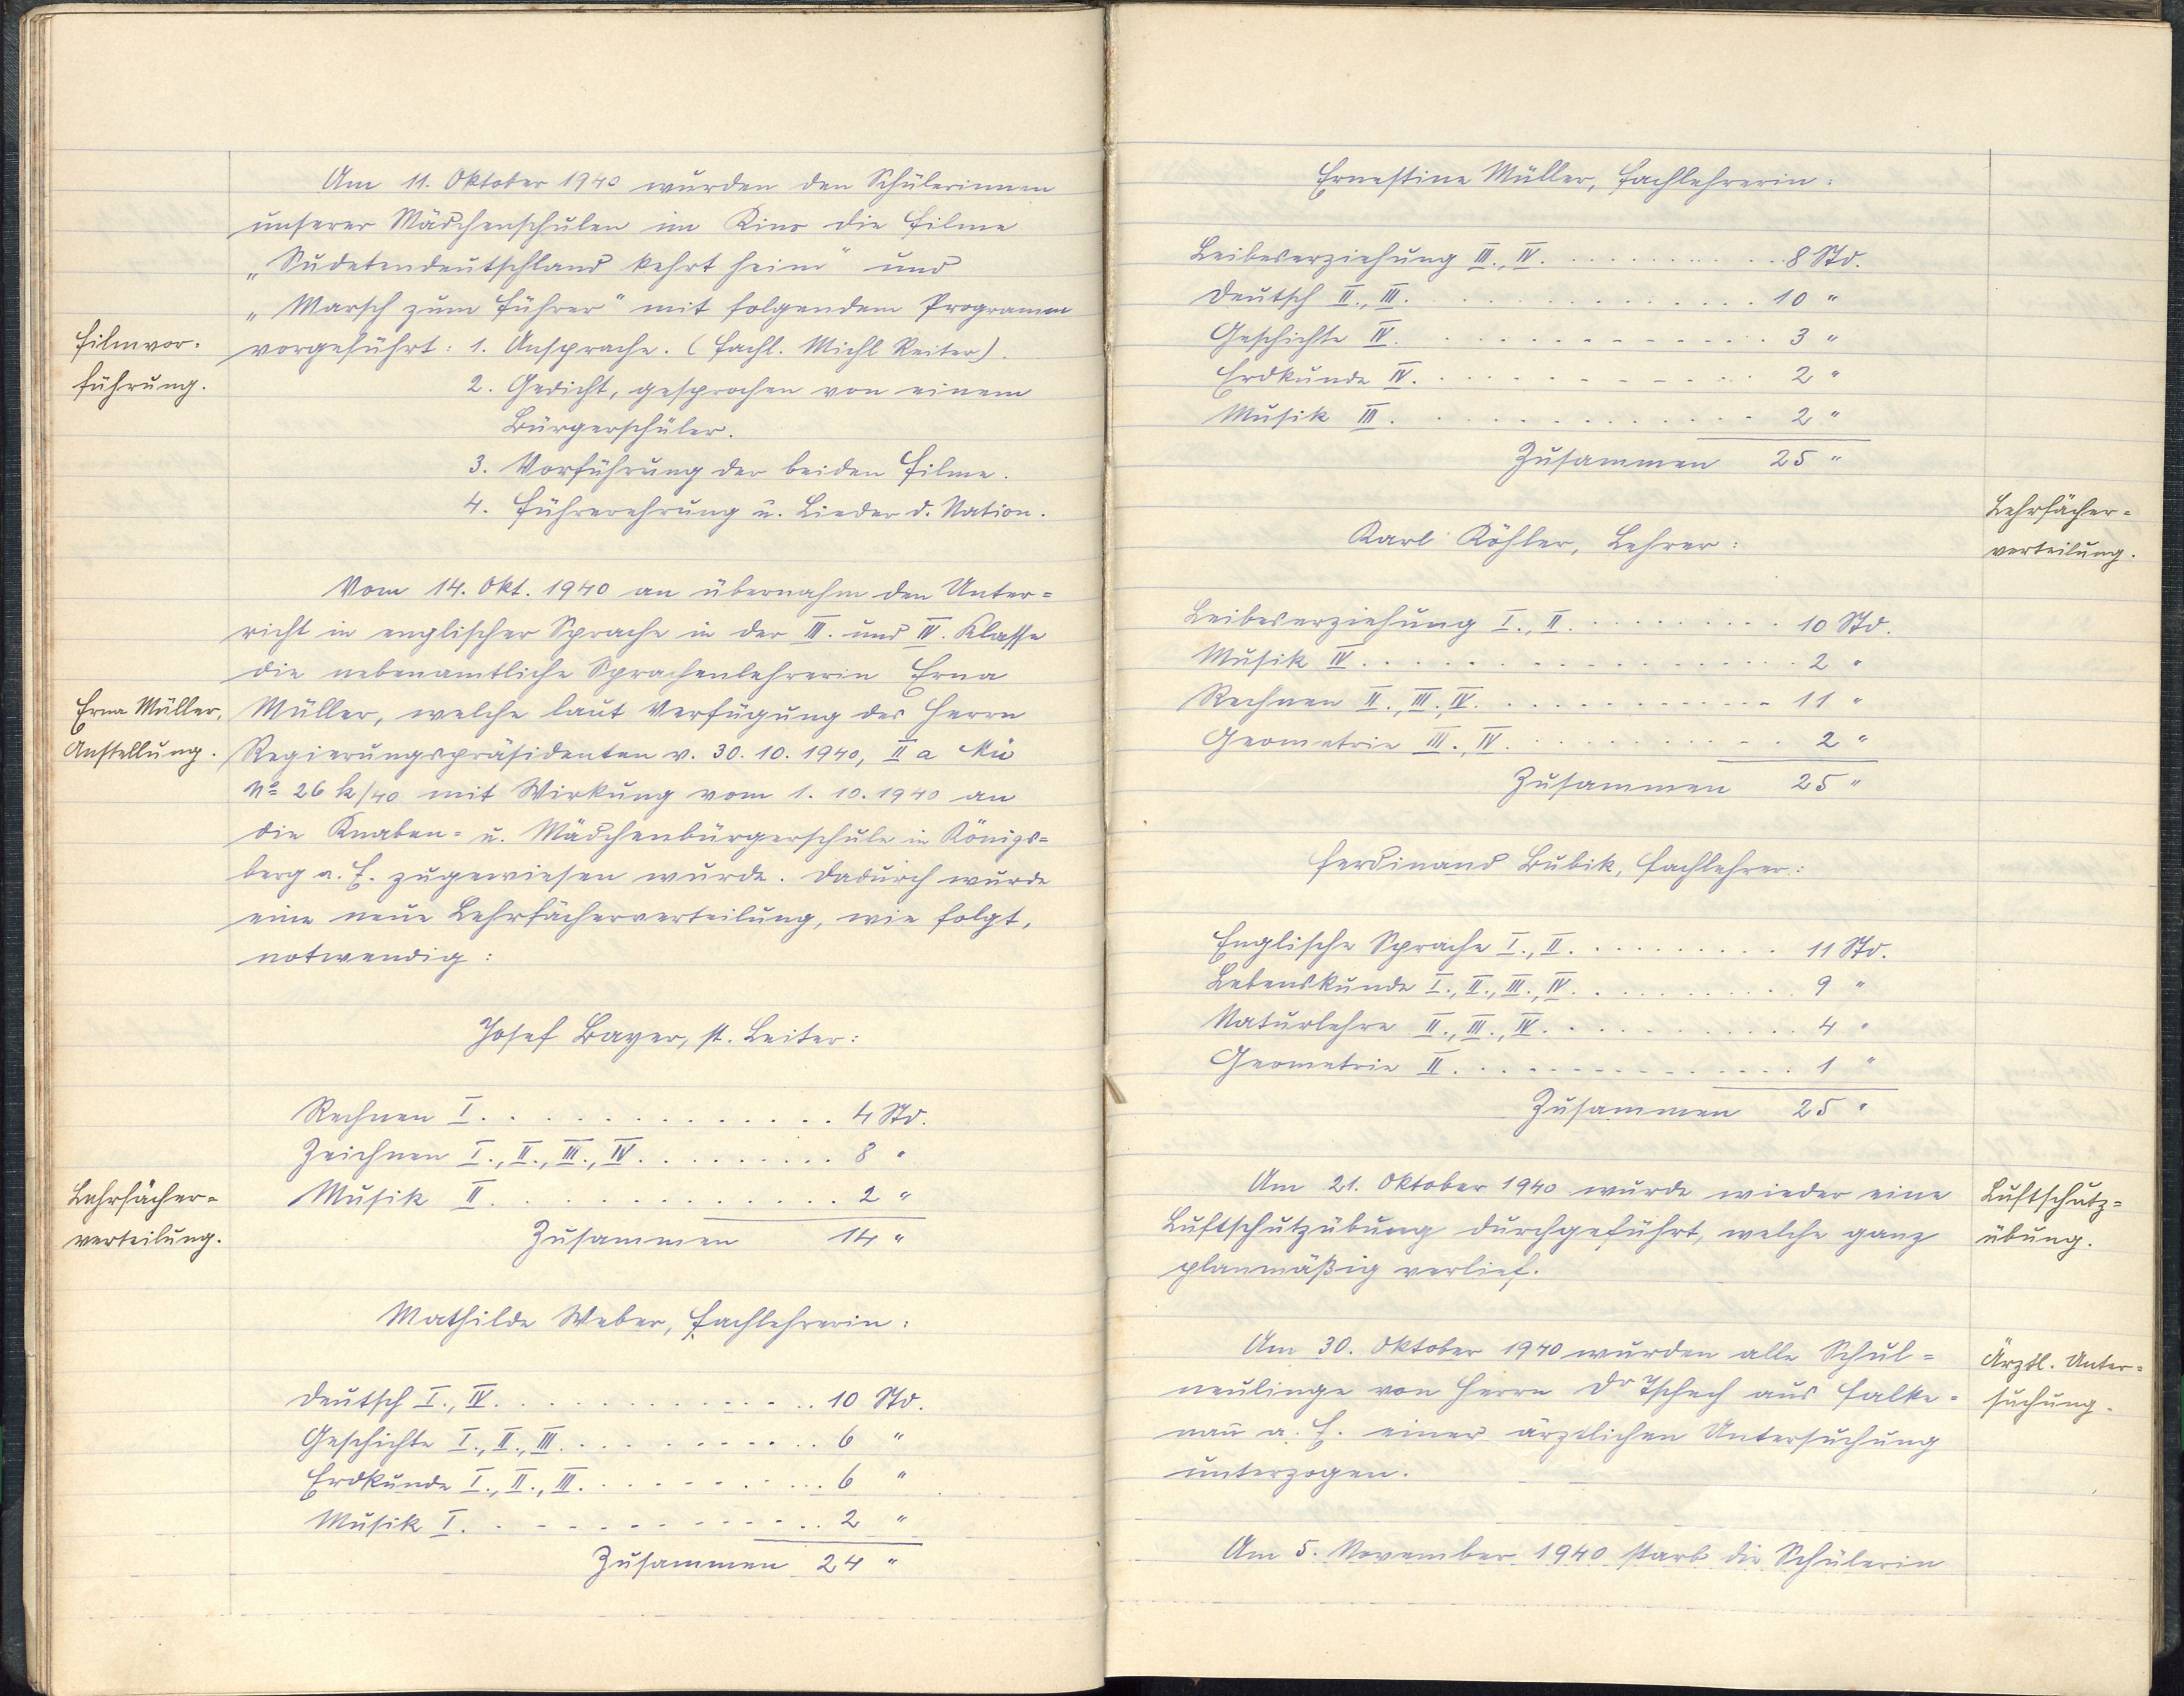 Am 11. Oktober 1940 wurden den Schülerinnen
unserer Mädchenschulen im Kino die Filme
„Sudetendeutschland kehrt heim" und
„Marsch zum Führer" mit folgendem Programm
Filmvor-
führung.
vorgeführt: 1. Ansprache. (Fachl. Michl Reiter).
2. Gedicht, gesprochen von einem
Bürgerschüler.
3. Vorführung der beiden Filme.
4. Führerehrung u. Lieder d. Nation.
Vom 14. Okt. 1940 an übernahm den Unter=
richt in englischer Sprache in der III. und IV. Klasse
die nebenamtliche Sprachenlehrerin Erna
Erna Müller,
Anstellung.
Müller, welche laut Verfügung des Herrn
Regierungspräsidenten v. 30. 10. 1940, II a
No 26 k/40 mit Wirkung vom 1. 10. 1940 an
die Knaben= u. Mädchenbürgerschule in Königs=
berg a. E. zugewiesen wurde. Dadurch wurde
eine neue Lehrfächerverteilung, wie folgt,
notwendig:
Josef Bayer, st. Leiter:
Rechnen I. . . . . . . . . . . . . . 4 Std.
Zeichnen I., II., III., IV. . . . . . . . . . 8 "
Lehrfächer=
verteilung.
Musik II. . . . . . . . . . . . . . 2 "
Zusammen 14 "
Mathilde Weber, Fachlehrerin:
Deutsch I., IV. . . . . . . . . . . . . . 10 Std.
Geschichte I., II., III. . . . . . . . . . . 6 "
Erdkunde I., II., III. . . . . . . . . . . 6 "
Musik I. . . . . . . . . . . . . . 2 "
Zusammen 24 "
Ernestine Müller, Fachlehrerin:
Leibeserziehung III., IV. . . . . . . . . . . 8 Std.
Deutsch II., III. . . . . . . . . . . . . . 10 "
Geschichte IV. . . . . . . . . . . . . . 3 "
Erdkunde IV. . . . . . . . . . . . . . 2 "
Musik III. . . . . . . . . . . . . . 2 "
Zusammen 25 "
Lehrfächer=
verteilung.
Karl Köhler, Lehrer:
Leibeserziehung I., II. . . . . . . . . . 10 Std.
Musik IV. . . . . . . . . . . . . . . . . 2 "
Rechnen II., III., IV. . . . . . . . . . . . . 11 "
Geometrie III., IV. . . . . . . . . . . . 2 "
Zusammen 25 "
Ferdinand Bubik, Fachlehrer:
Englische Sprache I., II. . . . . . . . . . 11 Std.
Lebenskunde I., II., III., IV. . . . . . . . . . 9 "
Naturlehre II., III., IV. . . . . . . . . . . 4 "
Geometrie II. . . . . . . . . . . . . . . 1 "
Zusammen 25 "
Am 21. Oktober 1940 wurde wieder eine
Luftschutzübung durchgeführt, welche ganz
planmäßig verlief.
Luftschutz=
übung.
Am 30. Oktober 1940 wurden alle Schul=
neulinge von Herrn Dr Tschech aus Falke=
nau a. E. einer ärztlichen Untersuchung
unterzogen.
Ärztl. Unter=
suchung.
Am 5. November 1940 starb die Schülerin